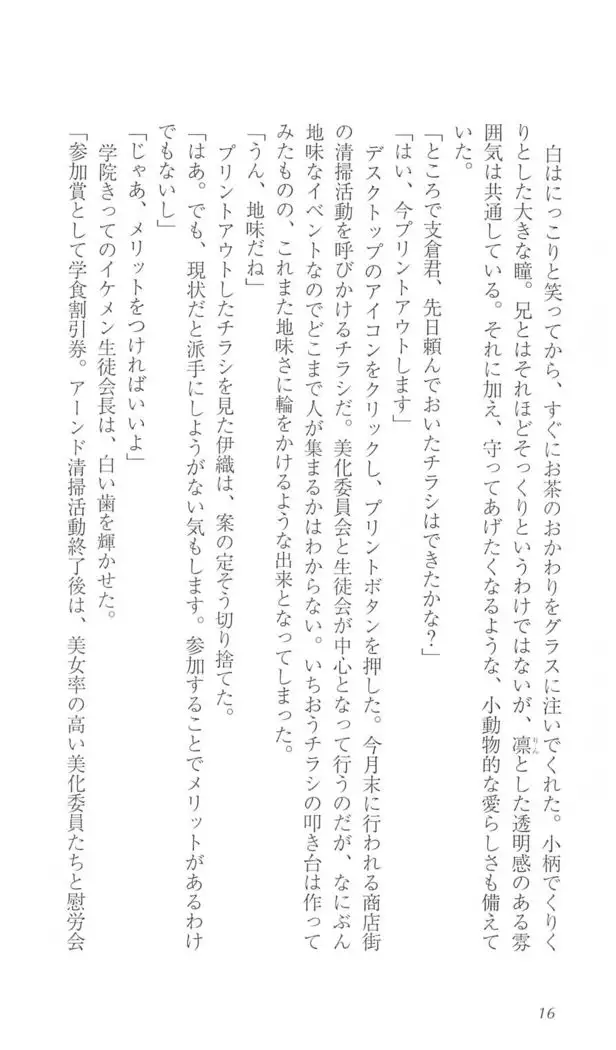 白はにっこりと笑ってから、すぐにお茶のおかわりをグラスに注いでくれた。小柄でくりく
りとした大きな瞳。兄とはそれほどそっくりというわけではないが、凛とした透明感のある雰
りん
囲気は共通している。それに加え、守ってあげたくなるような、小動物的な愛らしさも備えて
いた。
「ところで支倉君、先日頼んでおいたチラシはできたかな?」
「はい、今プリントアウトします」
デスクトップのアイコンをクリックし、プリントボタンを押した。今月末に行われる商店街
の清掃活動を呼びかけるチラシだ。美化委員会と生徒会が中心となって行うのだが、なにぶん
地味なイベントなのでどこまで人が集まるかはわからない。いちおうチラシの叩き台は作って
みたものの、これまた地味さに輪をかけるような出来となってしまった。
「うん、地味だね」
プリントアウトしたチラシを見た伊織は、案の定そう切り捨てた。
「はあ。でも、現状だと派手にしようがない気もします。参加することでメリットがあるわけ
でもないし」
「じゃあ、メリットをつければいいよ」
学院きってのイケメン生徒会長は、白い歯を輝かせた。
「参加賞として学食割引券。アーンド清掃活動終了後は、美女率の高い美化委員たちと慰労会
16